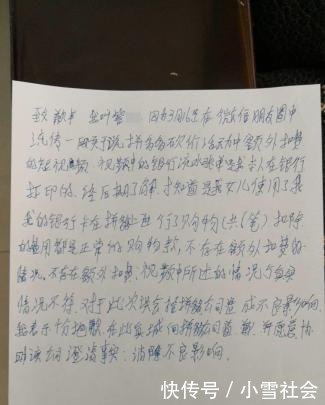 致歉书
因好冲动在微信朋友圈中
流传一段关于说拼多多砍价活动中额外扣费
的短视频。视频中的银行流水账单是本人在银行
打印的。经后期了解,才知道是女儿使用了我
我的银行卡在拼多多上进行了购物(共 笔)扣除
的费用都是正常的购物款,不存在额外扣费的
情况。不存在额外扣费,视频中所述的情况与真实
情况不符。对于此次误会给拼多多公司造成不良影响,
我表示十分抱歉,在此真诚向拼多多公司道歉,并愿意协
助该公司澄清事实,消除不良影响。
快传号/小雪社会